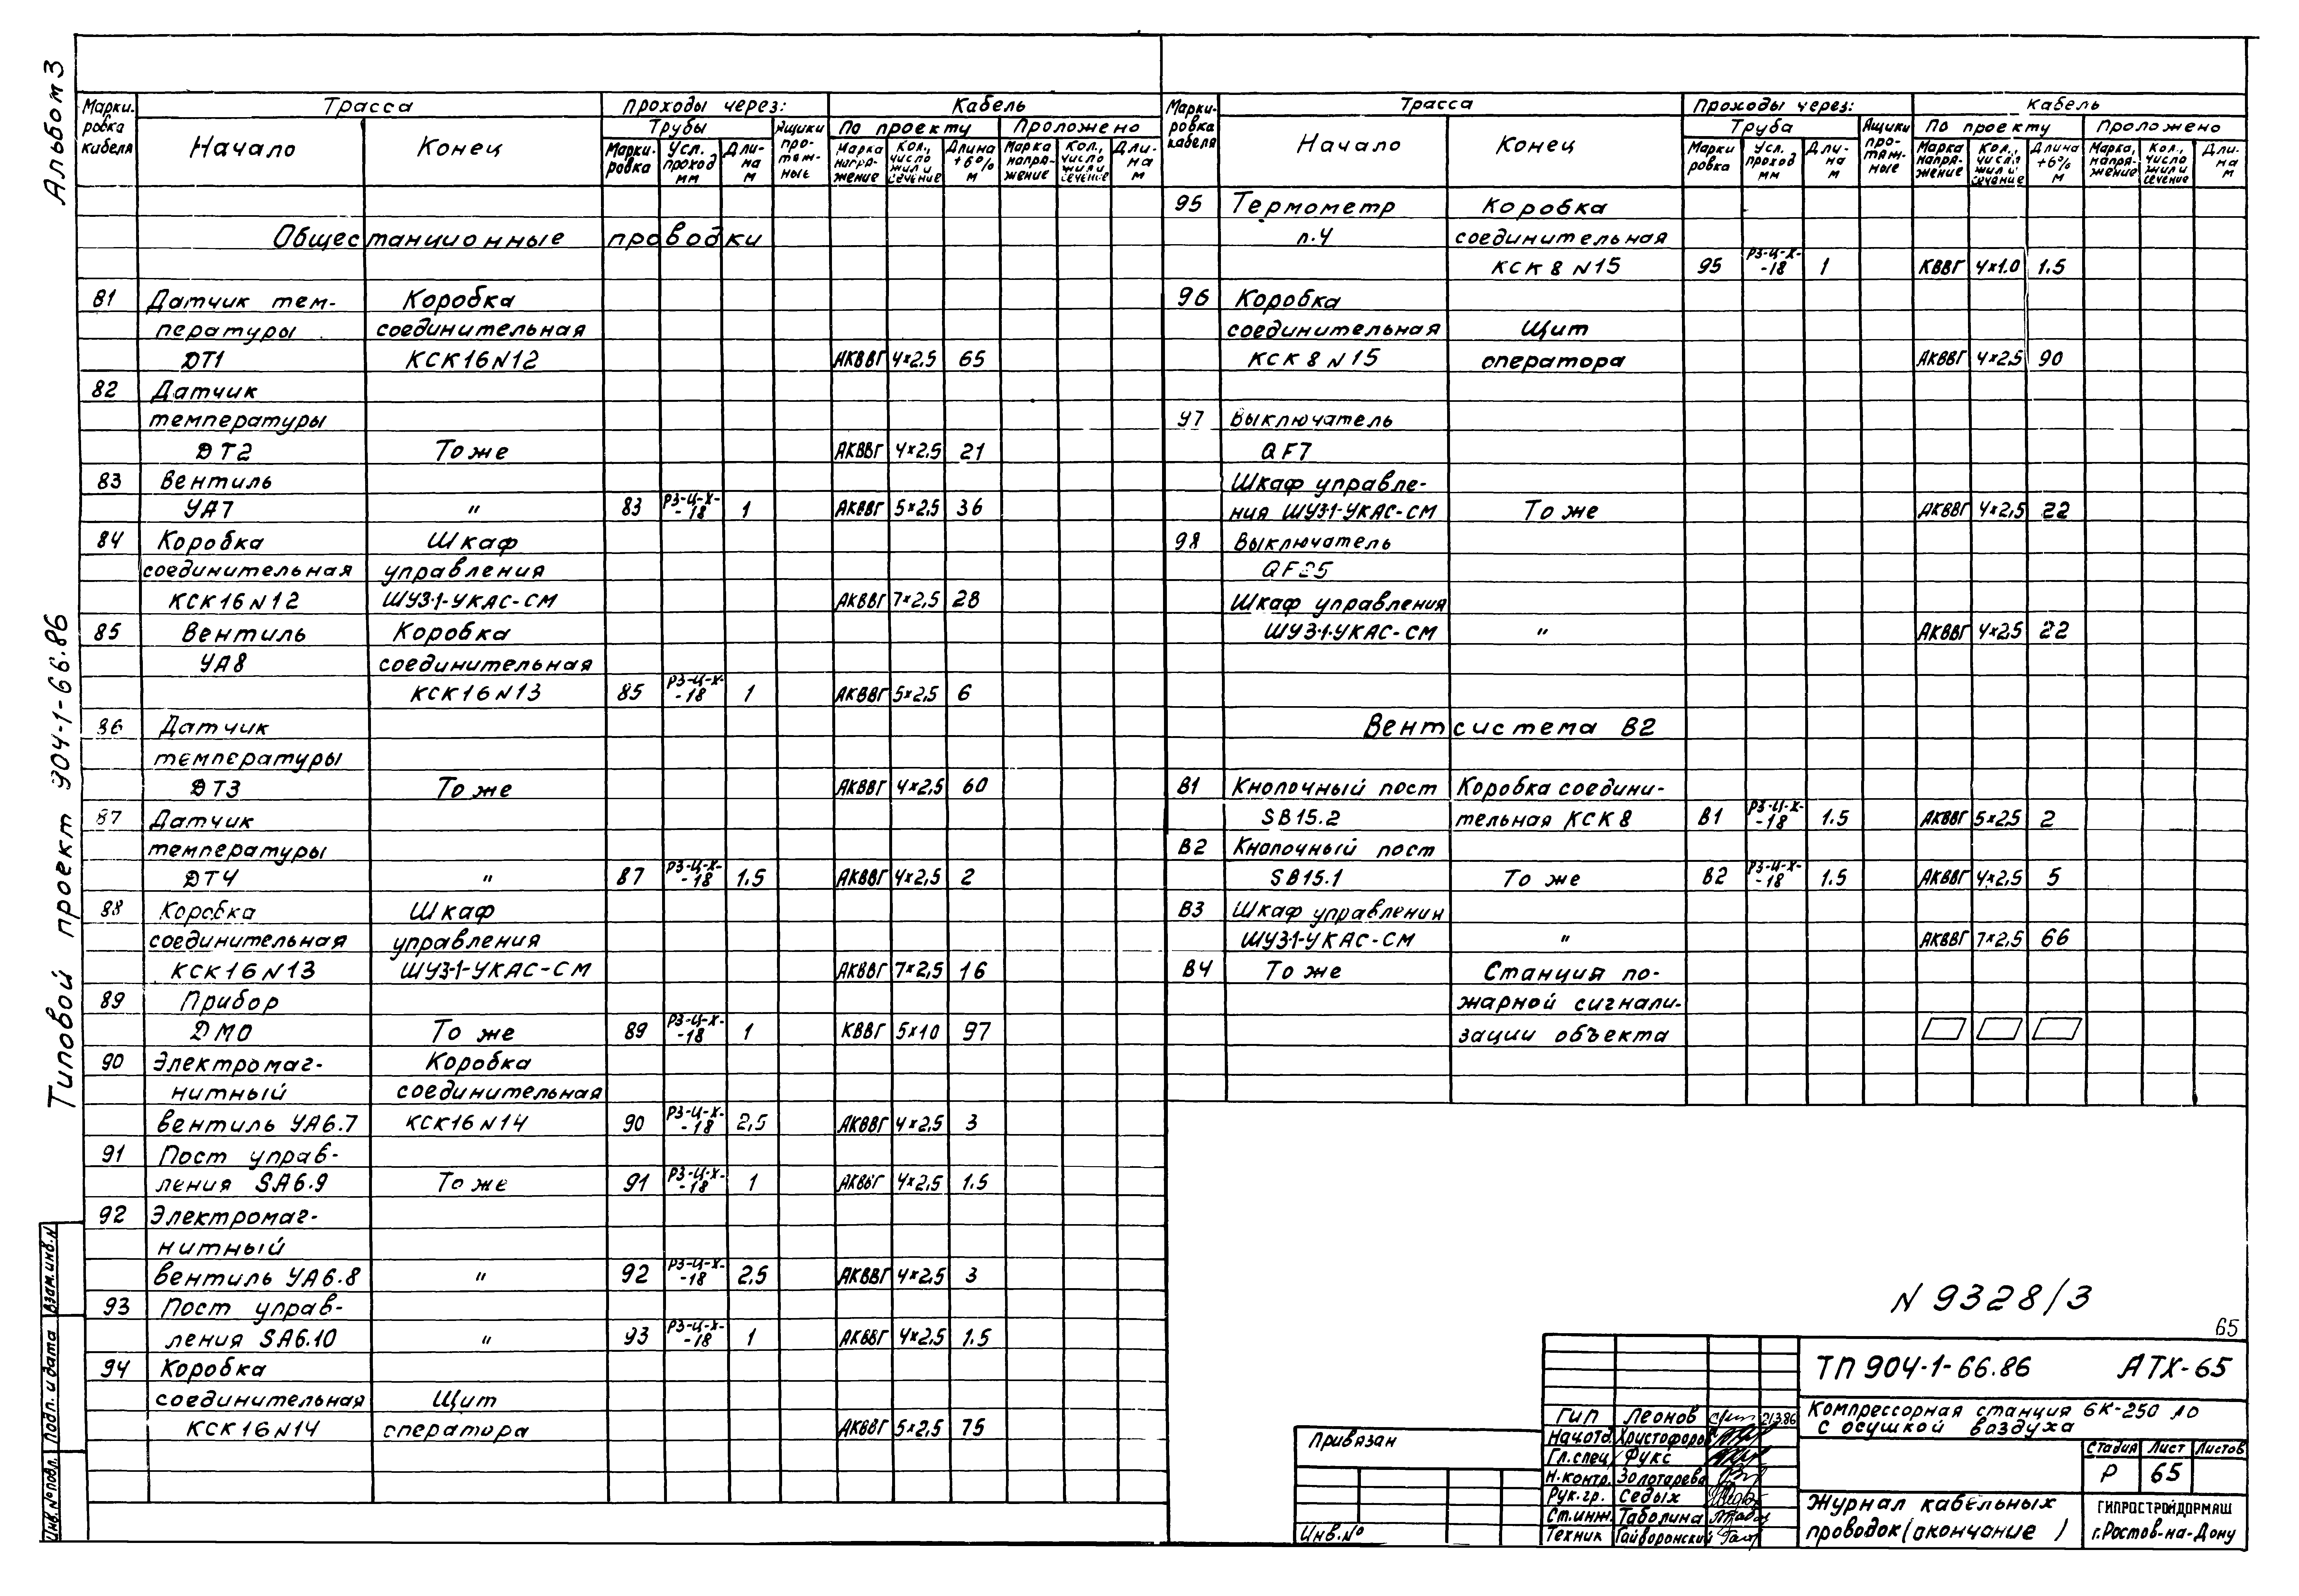 Альбом 3
Типовой проект 904-1-66.86
Взам.инв.N
Подп. и дата
Инв.№подл.
Марки-ровка кабеля
Трасса
Проходы через:
Кабель
Начало
Конец
Трубы
Ящики про-тяж-ные
По проекту
Проложено
Марки-ровка
Усл. проход мм
Дли-на м
Марка напря-жение
Кол., число жил и сечение
Длина +6% м
Марка напря-жение
Кол., число жил и сечение
Дли-на м
Общестанционные проводки
81 Датчик тем- Коробка
пературы соединительная
ДТ1 КСК16N12 АКВВГ 4×2.5 65
82 Датчик
температуры
ДТ2 То же АКВВГ 4×2.5 21
83 Вентиль
УА7 " 83 РЗ-Ц-Х-18 1 АКВВГ 5×2.5 36
84 Коробка Шкаф
соединительная управления
КСК16N12 ШУЗ·1-УКАС-СМ АКВВГ 7×2,5 28
85 Вентиль Коробка
УА8 соединительная
КСК16N13 85 РЗ-Ц-Х-18 1 АКВВГ 5×2,5 6
86 Датчик
температуры
ДТ3 То же АКВВГ 4×2,5 60
87 Датчик
температуры
ДТ4 " 87 РЗ-Ц-Х-18 1.5 АКВВГ 4×2,5 2
88 Коробка Шкаф
соединительная управления
КСК16N13 ШУЗ·1-УКАС-СМ АКВВГ 7×2,5 16
89 Прибор
ДМО То же 89 РЗ-Ц-Х-18 1 КВВГ 5×10 97
90 Электромаг- Коробка
нитный соединительная
вентиль УА6.7 КСК16N14 90 РЗ-Ц-Х-18 2,5 АКВВГ 4×2,5 3
91 Пост управ-
ления SA6.9 То же 91 РЗ-Ц-Х-18 1 АКВВГ 4×2,5 1.5
92 Электромаг-
нитный
вентиль УА6.8 " 92 РЗ-Ц-Х-18 2,5 АКВВГ 4×2,5 3
93 Пост управ-
ления SA6.10 " 93 РЗ-Ц-Х-18 1 АКВВГ 4×2,5 1.5
94 Коробка
соединительная Щит
КСК16N14 оператора АКВВГ 5×2,5 75
Марки-ровка кабеля
Трасса
Проходы через:
Кабель
Начало
Конец
Труба
Ящики про-тяж-ные
По проекту
Проложено
Марки ровка
Усл. проход мм
Дли-на м
Марка напря-жение
Кол., число жил и сечение
Длина +6% м
Марка, напря-жение
Кол., число жил и сечение
Дли-на м
95 Термометр Коробка
п.4 соединительная
КСК 8 N15 95 РЗ-Ц-Х-18 1 КВВГ 4×1.0 1.5
96 Коробка
соединительная Щит
КСК 8 N15 оператора АКВВГ 4×2,5 90
97 Выключатель
QF7
Шкаф управле-
ния ШУЗ·1-УКАС-СМ То же АКВВГ 4×2,5 22
98 Выключатель
QF25
Шкаф управления
ШУЗ·1·УКАС-СМ " АКВВГ 4×2.5 22
Вентсистема В2
В1 Кнопочный пост Коробка соедини-
SB15.2 тельная КСК8 В1 РЗ-Ц-Х-18 1.5 АКВВГ 5×2.5 2
В2 Кнопочный пост
SB15.1 То же В2 РЗ-Ц-Х-18 1.5 АКВВГ 4×2,5 5
В3 Шкаф управления
ШУЗ·1-УКАС-СМ " АКВВГ 7×2,5 66
В4 То же Станция по-
жарной сигнали-
зации объекта
N 9328/3
65
ТП 904-1-66.86 АТХ-65
Компрессорная станция 6К-250 АО
с осушкой воздуха
Стадия Лист Листов
Р 65
Журнал кабельных
проводок (окончание )
ГИПРОСТРОЙДОРМАШ
г.Ростов-на-Дону
ГИП Леонов 21.3.86
Нач.отд. Христофоров
Гл.спец. Фукс
Н.контр. Золотарева
Рук.гр. Седых
Ст.инж. Таболина
Техник Гайворонский
Привязан
Инв.№